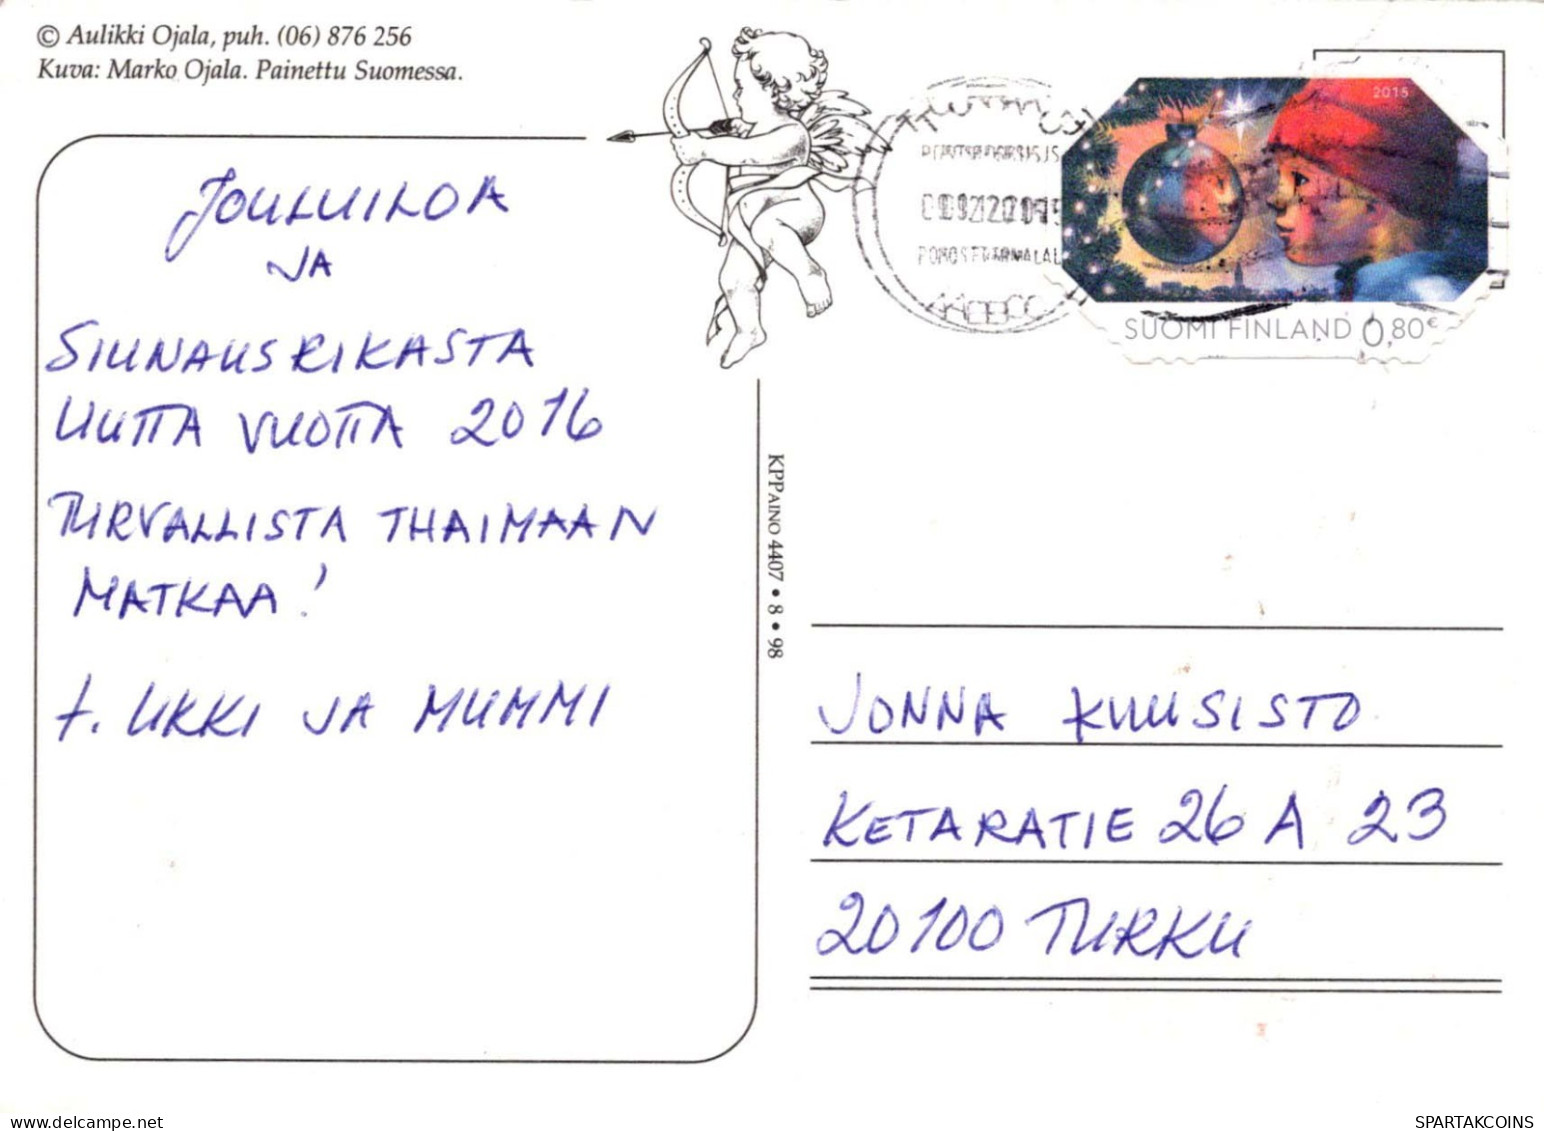 © Aulikki Ojala, puh. (06) 876 256
Kuva: Marko Ojala. Painettu Suomessa.
JOULUILOA
JA
SIUNAUSRIKASTA
UUTTA VUOTTA 2016
TURVALLISTA THAIMAAN
MATKAA!
T. UKKI JA MUMMI
KPPAINO 4407 • 8 • 98
2015
SUOMI FINLAND 0,80€
JONNA KUUSISTO
KETARATIE 26 A 23
20100 TURKU
SPARTAKCOINS